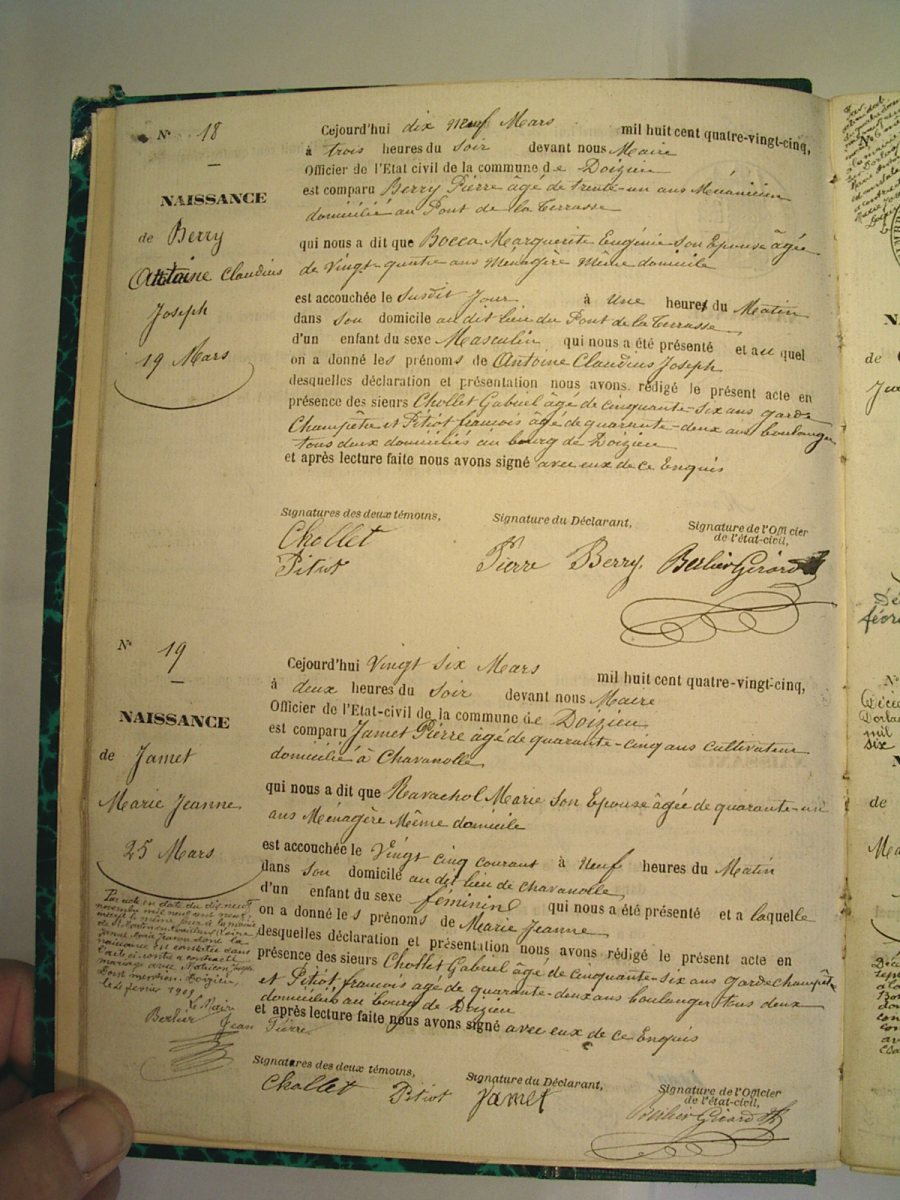 N° 18
NAISSANCE
de Berry
Antoine Claudius
Joseph
19 Mars
Cejourd'hui dix neuf Mars mil huit cent quatre-vingt-cinq,
à trois heures du soir devant nous Maire
Officier de l'Etat civil de la commune de Doizieu
est comparu Berry Pierre âgé de trente-un ans Mécanicien
domicilié au Pont de la Terrasse
qui nous a dit que Bocca Marguerite Eugénie son Epouse âgée
de Vingt-quatre ans Ménagère Même domicile
est accouchée le susdit Jour à Une heure du Matin
dans son domicile au dit lieu du Pont de la Terrasse
d'un enfant du sexe Masculin qui nous a été présenté et au quel
on a donné les prénoms de Antoine Claudius Joseph
desquelles déclaration et présentation nous avons rédigé le présent acte en
présence des sieurs Chollet Gabriel âgé de cinquante-six ans garde
Champêtre et Pitiot françois âgé de quarante-deux ans boulanger
tous deux domiciliés au bourg de Doizieu
et après lecture faite nous avons signé avec eux de ce Enquis
Signatures des deux témoins, Signature du Déclarant, Signature de l'Officier
de l'état-civil,
Chollet
Pitiot Pierre Berry Berlier Girard
N° 19
NAISSANCE
de Jamet
Marie Jeanne
25 Mars
Cejourd'hui Vingt six Mars mil huit cent quatre-vingt-cinq,
à deux heures du soir devant nous Maire
Officier de l'Etat-civil de la commune de Doizieu
est comparu Jamet Pierre âgé de quarante-cinq ans cultivateur
domicilié à Chavanolle
qui nous a dit que Ravachol Marie son Epouse âgée de quarante-un
ans Ménagère Même domicile
est accouchée le Vingt cinq courant à neuf heures du Matin
dans son domicile au dit lieu de chavanolle
d'un enfant du sexe féminin qui nous a été présenté et a laquelle
on a donné les prénoms de Marie Jeanne
desquelles déclaration et présentation nous avons rédigé le présent acte en
présence des sieurs Chollet Gabriel âgé de cinquante-six ans garde champêtre
et Pitiot françois age de quarante-deux ans boulanger tous deux
domiciliés au bourg de Doizieu
et après lecture faite nous avons signé avec eux de ce Enquis
Signatures des deux témoins, Signature du Déclarant, Signature de l'Officier
de l'état-civil,
Chollet Pitiot Jamet Berlier Girard
Par acte en date du dix neuf
novembre mil neuf cent
inscrit le même jour à la mairie
de St
Jamet Marie Jeanne dont la
naissance est constatée dans
l'acte ci-contre a contracté
mariage avec
Dont mention. Doizieu,
le 4 février 1909
Le Maire
Berlier Jean
Pierre